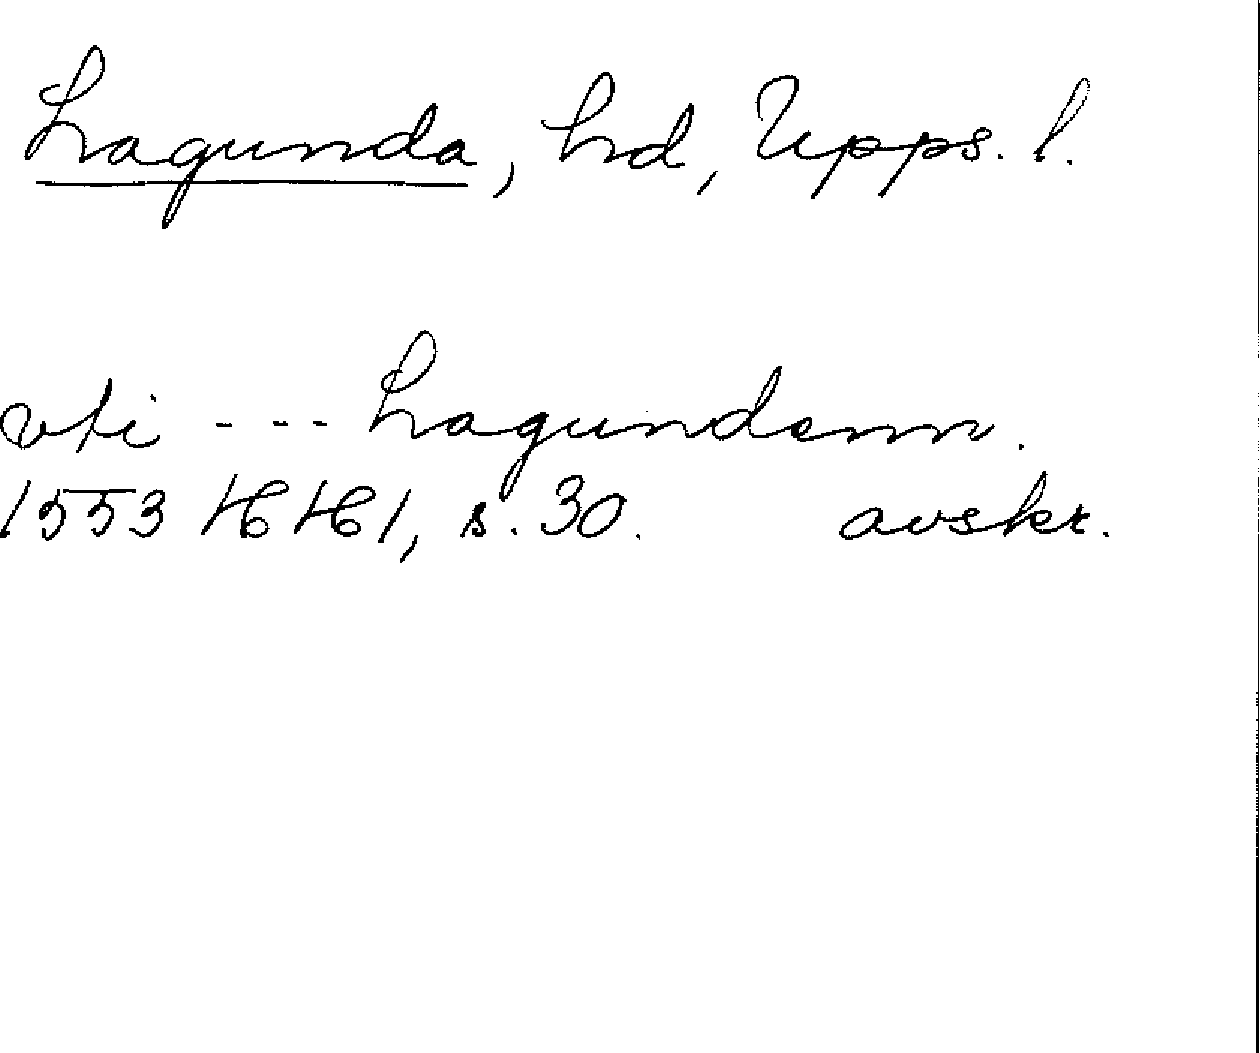 Lagunda, hd, Upps. l.
vti --- Lagundenn.
1553 HH1, s. 30. avskr.